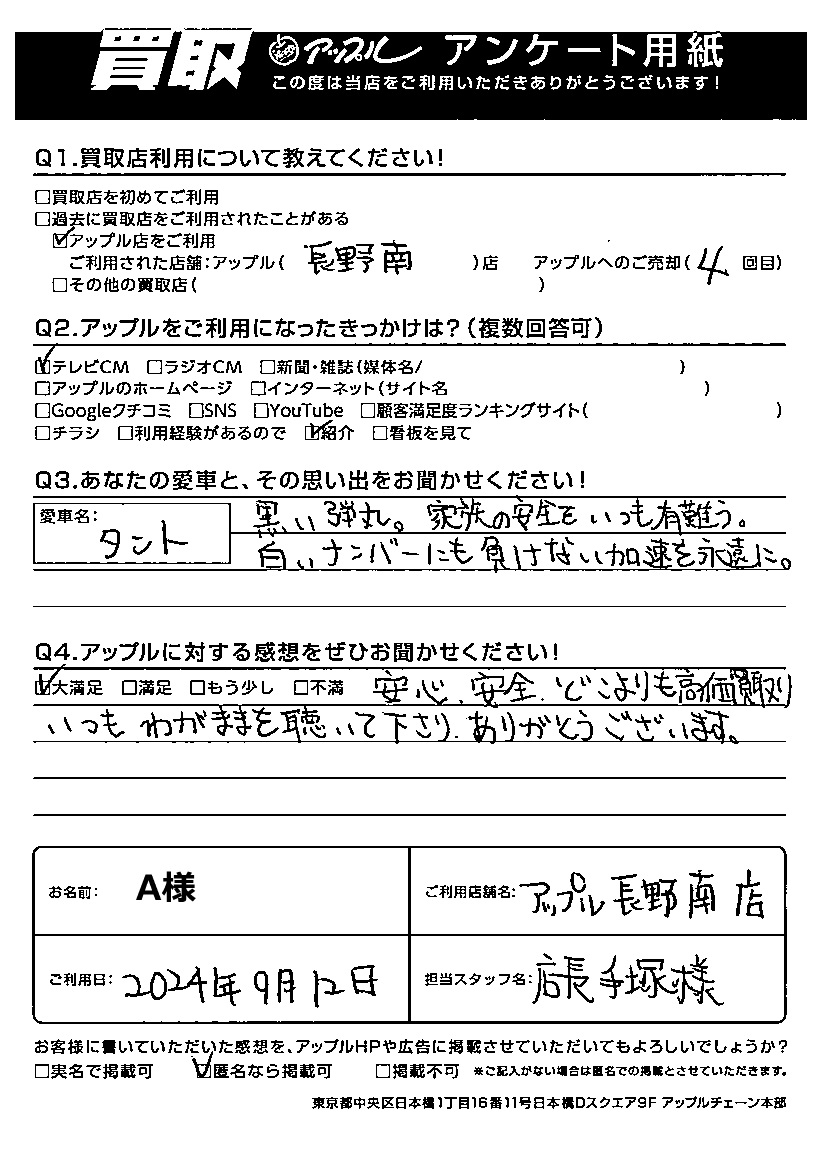 買取 アップル アンケート用紙
この度は当店をご利用いただきありがとうございます!
Q1.買取店利用について教えてください!
□買取店を初めてご利用
□過去に買取店をご利用されたことがある
☑アップル店をご利用
ご利用された店舗:アップル( 長野南 )店 アップルへのご売却( 4 回目)
□その他の買取店( )
Q2.アップルをご利用になったきっかけは?(複数回答可)
☑テレビCM □ラジオCM □新聞・雑誌(媒体名/ )
□アップルのホームページ □インターネット(サイト名 )
□Googleクチコミ □SNS □YouTube □顧客満足度ランキングサイト( )
□チラシ □利用経験があるので ☑紹介 □看板を見て
Q3.あなたの愛車と、その思い出をお聞かせください!
愛車名: タント
黒い弾丸。家族の安全をいつも有難う。
白いナンバーにも負けない加速を永遠に。
Q4.アップルに対する感想をぜひお聞かせください!
☑大満足 □満足 □もう少し □不満 安心、安全、どこよりも高価買取り
いつもわがままを聴いて下さり、ありがとうございます。
お名前: A様
ご利用店舗名: アップル長野南店
ご利用日: 2024年9月12日
担当スタッフ名: 店長手塚様
お客様に書いていただいた感想を、アップルHPや広告に掲載させていただいてもよろしいでしょうか?
□実名で掲載可 ☑匿名なら掲載可 □掲載不可 ※ご記入がない場合は匿名での掲載とさせていただきます。
東京都中央区日本橋1丁目16番11号日本橋Dスクエア9F アップルチェーン本部